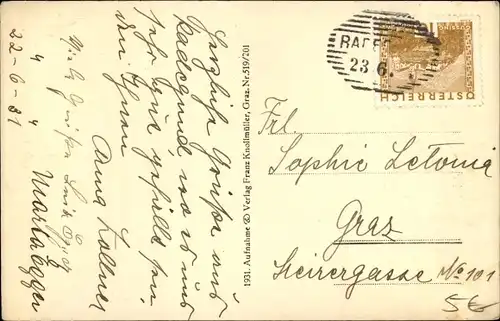 Herzliche Grüße aus
Radegund wo es uns
sehr gut gefällt
Ihnen
Anna
Viele Grüße
Marta Egger
22-6-31
1931. Aufnahme u. Verlag Franz Knollmüller, Graz. Nr. 519/201
RADE
23.6.
ÖSTERREICH
Frl.
Sophie Letonia
Graz
Steirergasse No 101
5€